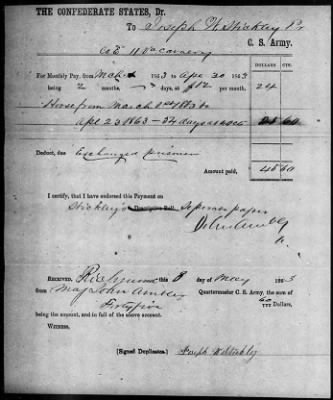 THE CONFEDERATE STATES, Dr.
To Joseph W Stickley Pr
Co E 11 Va Cavalry C. S. Army.
DOLLARS CTS.
For Monthly Pay, from March 1 1863 to Apr 30 1863
being 2 months, days, at $12 per month. 24
Horse from March 1st 1863 to
Apl 23 1863 - 54 days at 40cts
Deduct, due Exchanged prisoner
Amount paid, 45 60
I certify, that I have endorsed this Payment on
Stickley's Descriptive Roll. paper
John Ambler
RECEIVED, Richmond this 8 day of May 1863
from Maj John Ambler Quartermaster C. S. Army, the sum of
Forty five 60/100 Dollars,
being the amount, and in full of the above account.
WITNESS,
(Signed Duplicates.) Joseph W Stickly